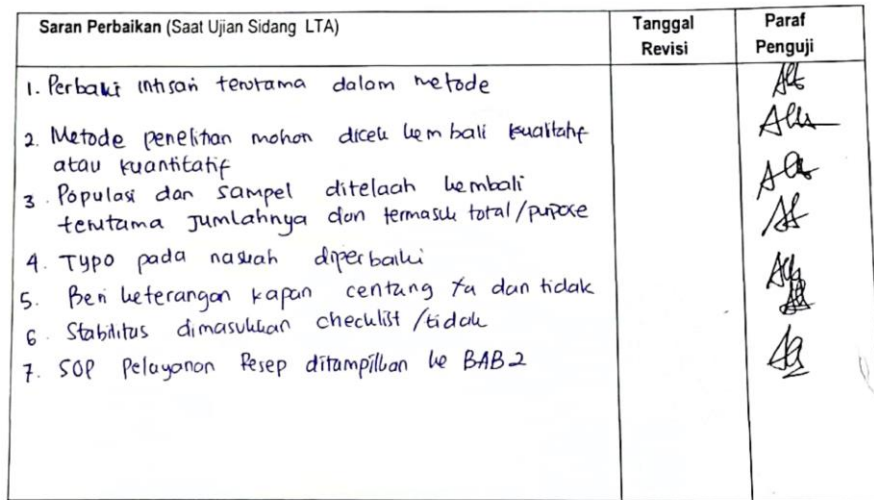 Saran Perbaikan (Saat Ujian Sidang LTA)
Tanggal Revisi
Paraf Penguji
1. Perbaiki intisari terutama dalam metode
2. Metode penelitian mohon dicek kembali kualitatif
atau kuantitatif
3. Populasi dan sampel ditelaah kembali
terutama jumlahnya dan termasuk total/purpose
4. Typo pada naskah diperbaiki
5. Beri keterangan kapan centang ya dan tidak
6. Stabilitas dimasukkan checklist/tidak
7. SOP Pelayanan Resep ditampilkan ke BAB 2